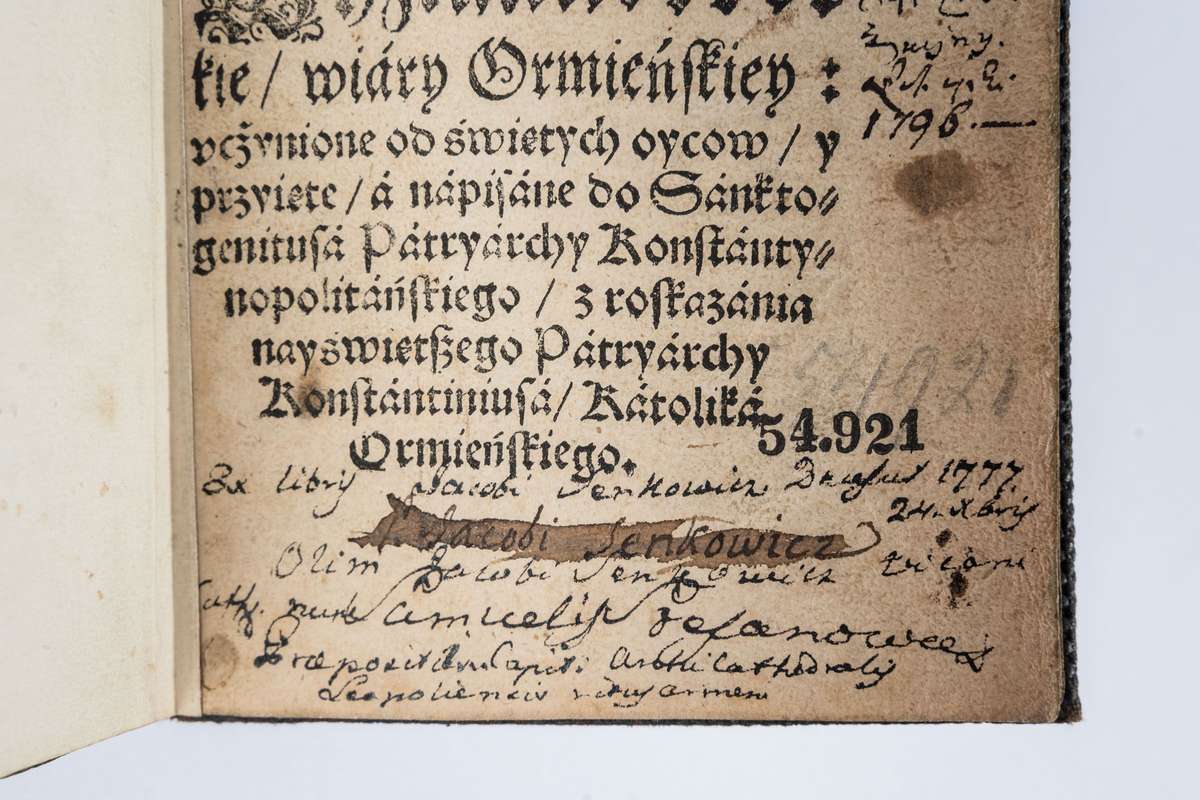 kie / wiáry Ormieńskiey :
vcżynione od świetych oycow / y
przyiete / á nápisáne do Sánkto⸗
genitusá Pátryárchy Konstánty⸗
nopolitáńskiego / z roskazánia
nayswietszego Pátryárchy
Konstántiniusá / Kátoliká
Ormieńskiego.
1796.—
54921
54.921
Ex libris Jacobi Senkowicz 1777
24 Xbris
Jacobi Senkowicz
Olim Jacobi Senkowicz
Cath. nunc Samuelis Stefanowicz
Praepositi Capit. Archicathedralis
Leopoliensis ritus armeni